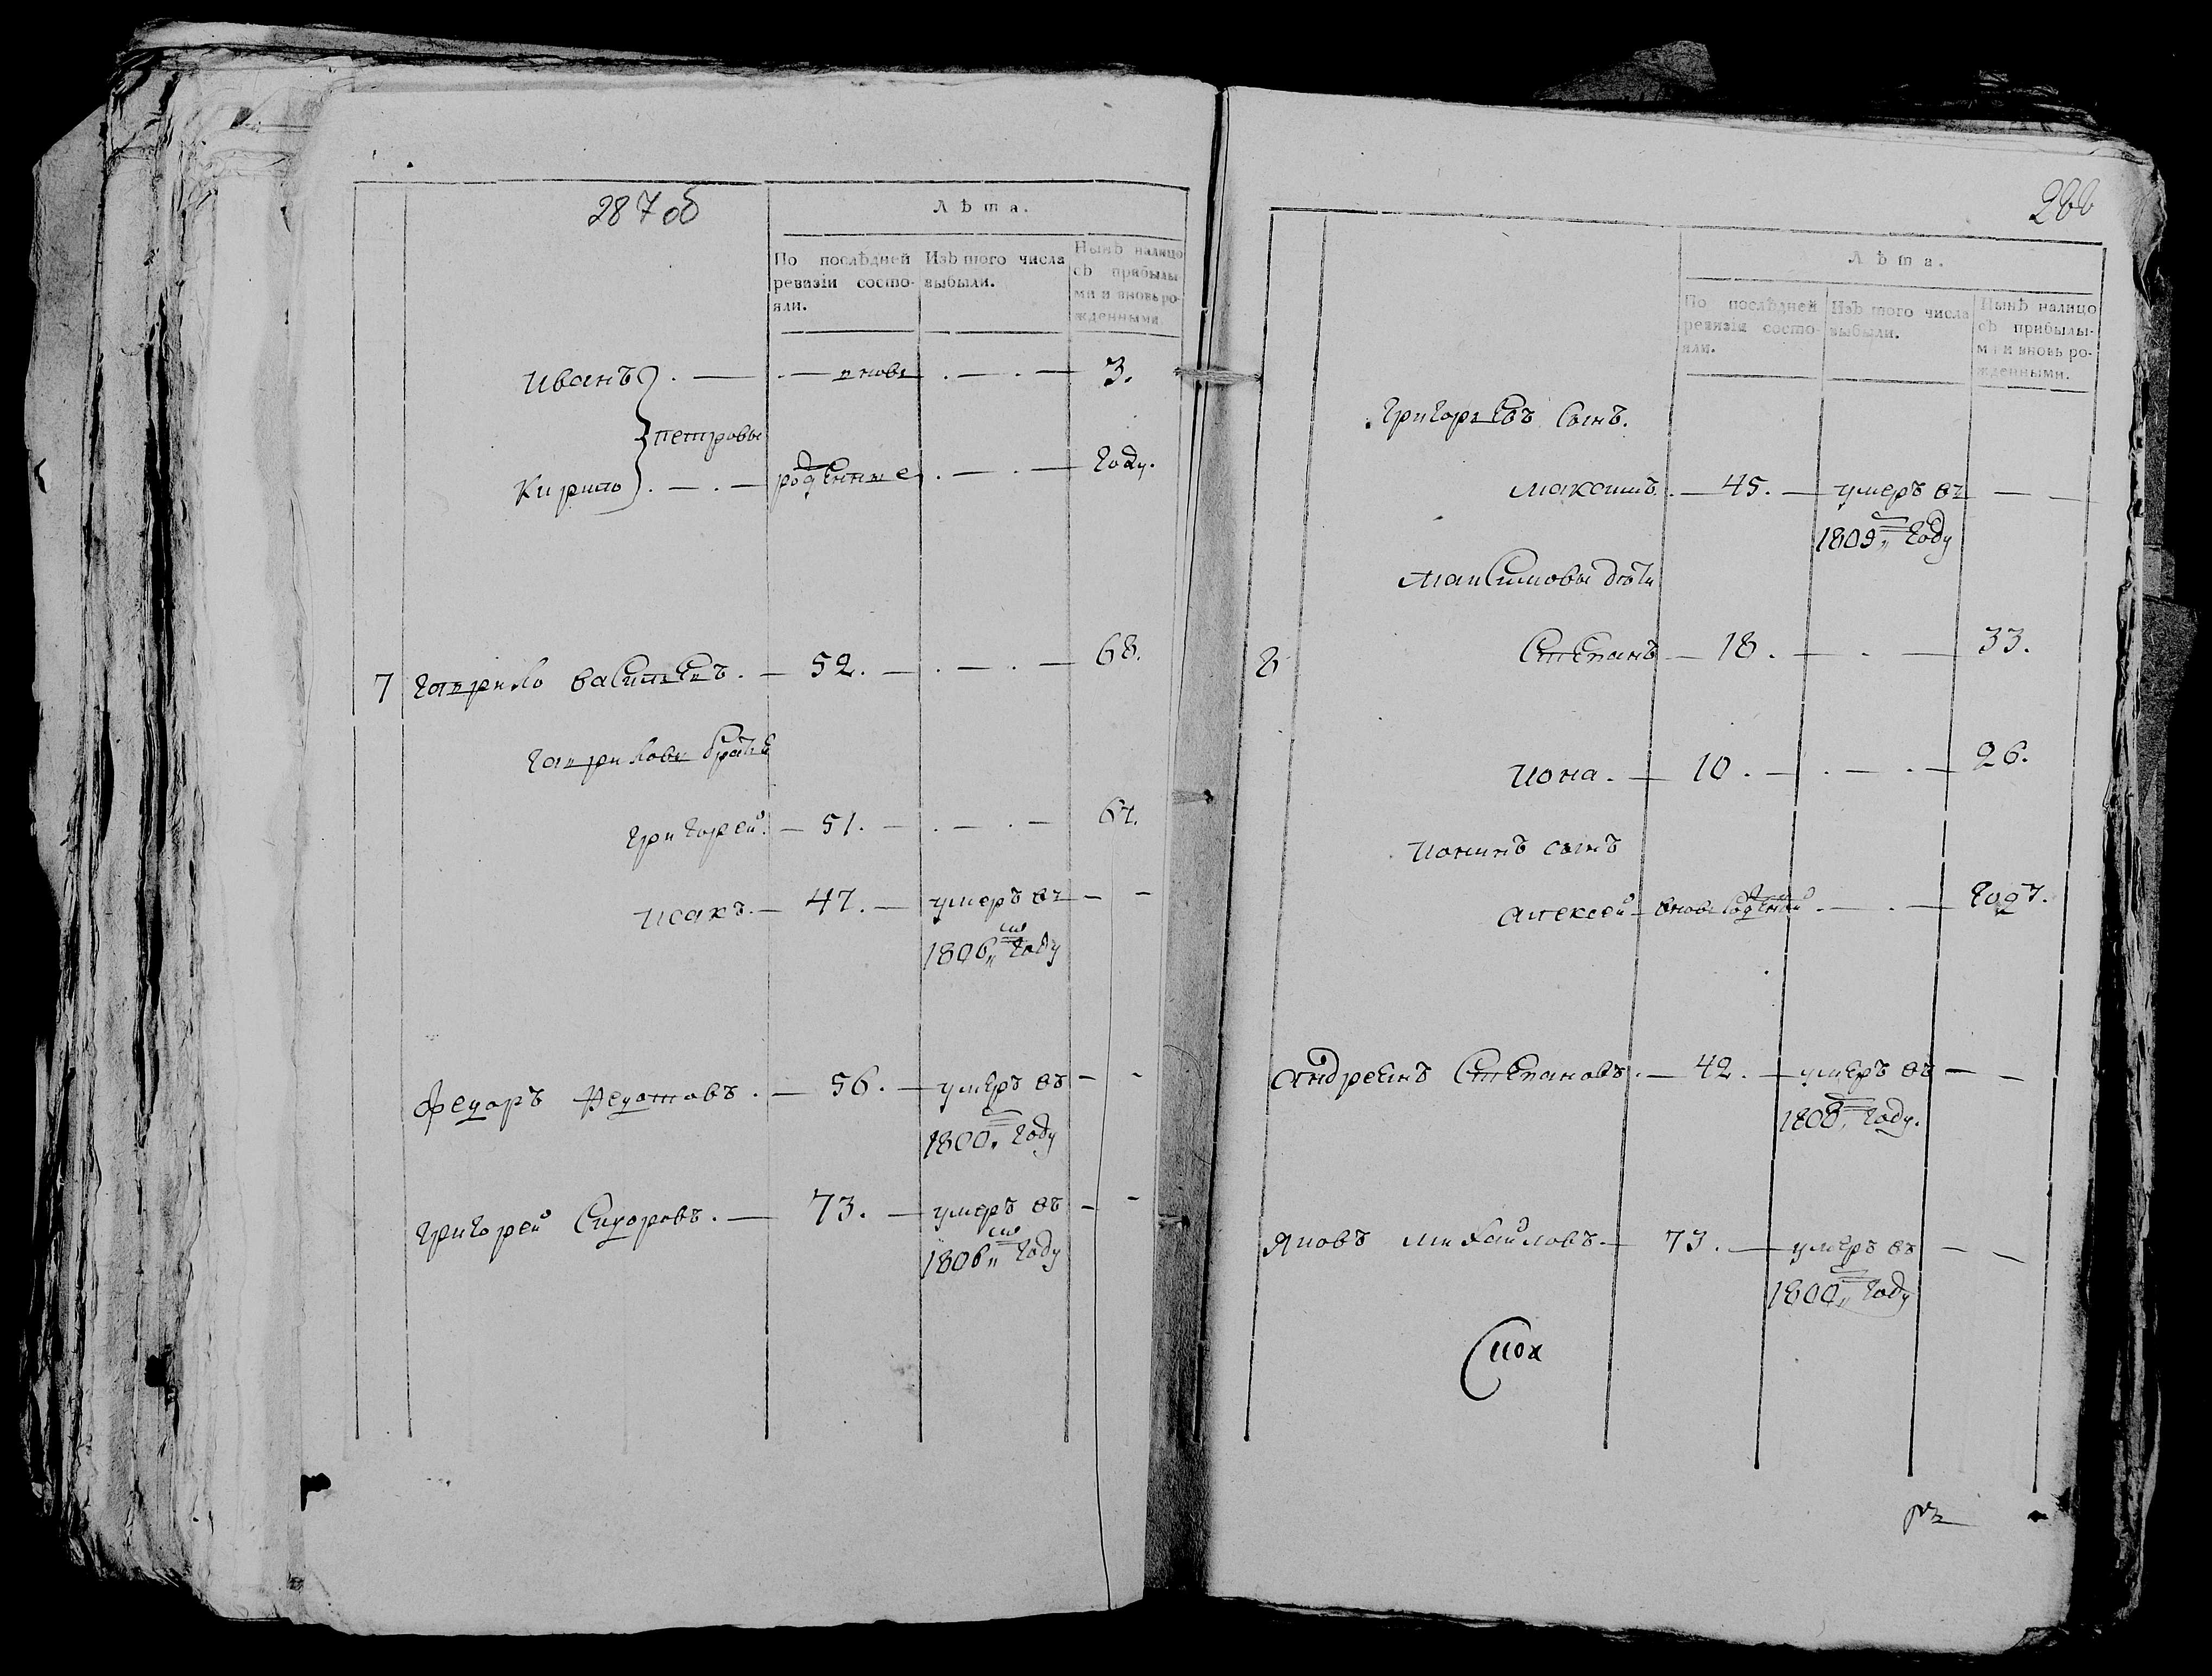 287 об
Лѣта.
По послѣдней ревизіи состояли.
Изъ того числа выбыли.
Нынѣ налицо съ прибылыми и вновь рожденными.
Иванъ . — . — вновь . — . — 3.
петровы
Кирило . — . — рожденные . — . — году.
7 гаврило васильевъ . — 52. — . — . — 68.
гавриловы братья
григорей . — 51. — . — . — 67.
исакъ . — 47. — умеръ въ — -
1806„ году
федоръ Федотовъ . — 56. — умеръ въ - -
1800. году
григорей Сидоровъ . — 73. — умеръ въ - -
1806„ году
288
Лѣта.
По послѣдней ревизіи состояли.
Изъ того числа выбыли.
Нынѣ налицо съ прибылыми и вновь рожденными.
григорьевъ сынъ.
. — 45. — умеръ въ — —
1809„ году
максимовы дѣти
8 Степанъ — 18. — . — 33.
Иона . — 10. — . — . — 26.
Ионинъ сынъ
алексей — вновь рожденной . — . — годъ.
андреянъ Степановъ . — 42. — умеръ въ — —
1808, году.
яковъ михайловъ . — 73. — умеръ въ — —
1800„ году